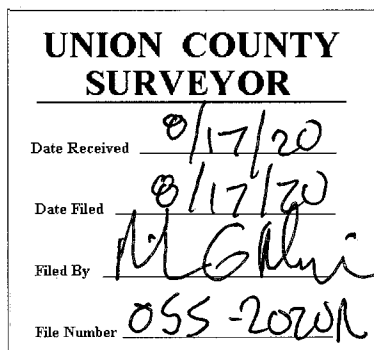 UNION COUNTY
SURVEYOR
Date Received 8/17/20
Date Filed 8/17/20
Filed By
File Number 055-2020R